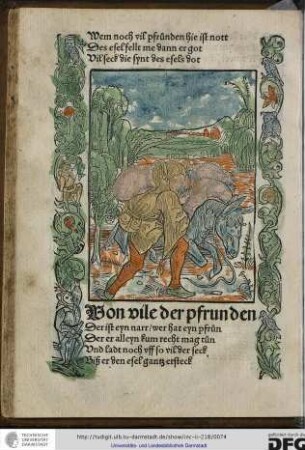 Wem noch vil pfründen hie ist nott
Des esel fellt me dann er got
Vil seck die synt des esels dot
Von vile der pfrunden
Der ist eyn narr / wer hat eyn pfrün
Der er alleyn kum recht mag tůn
Vnd ladt noch vff so vil der seck
Biß er den esel gantz ersteck
TECHNISCHE
UNIVERSITÄT
DARMSTADT
http://tudigit.ulb.tu-darmstadt.de/show/inc-ii-218/0074
Universitäts- und Landesbibliothek Darmstadt
gefördert durch die
DFG